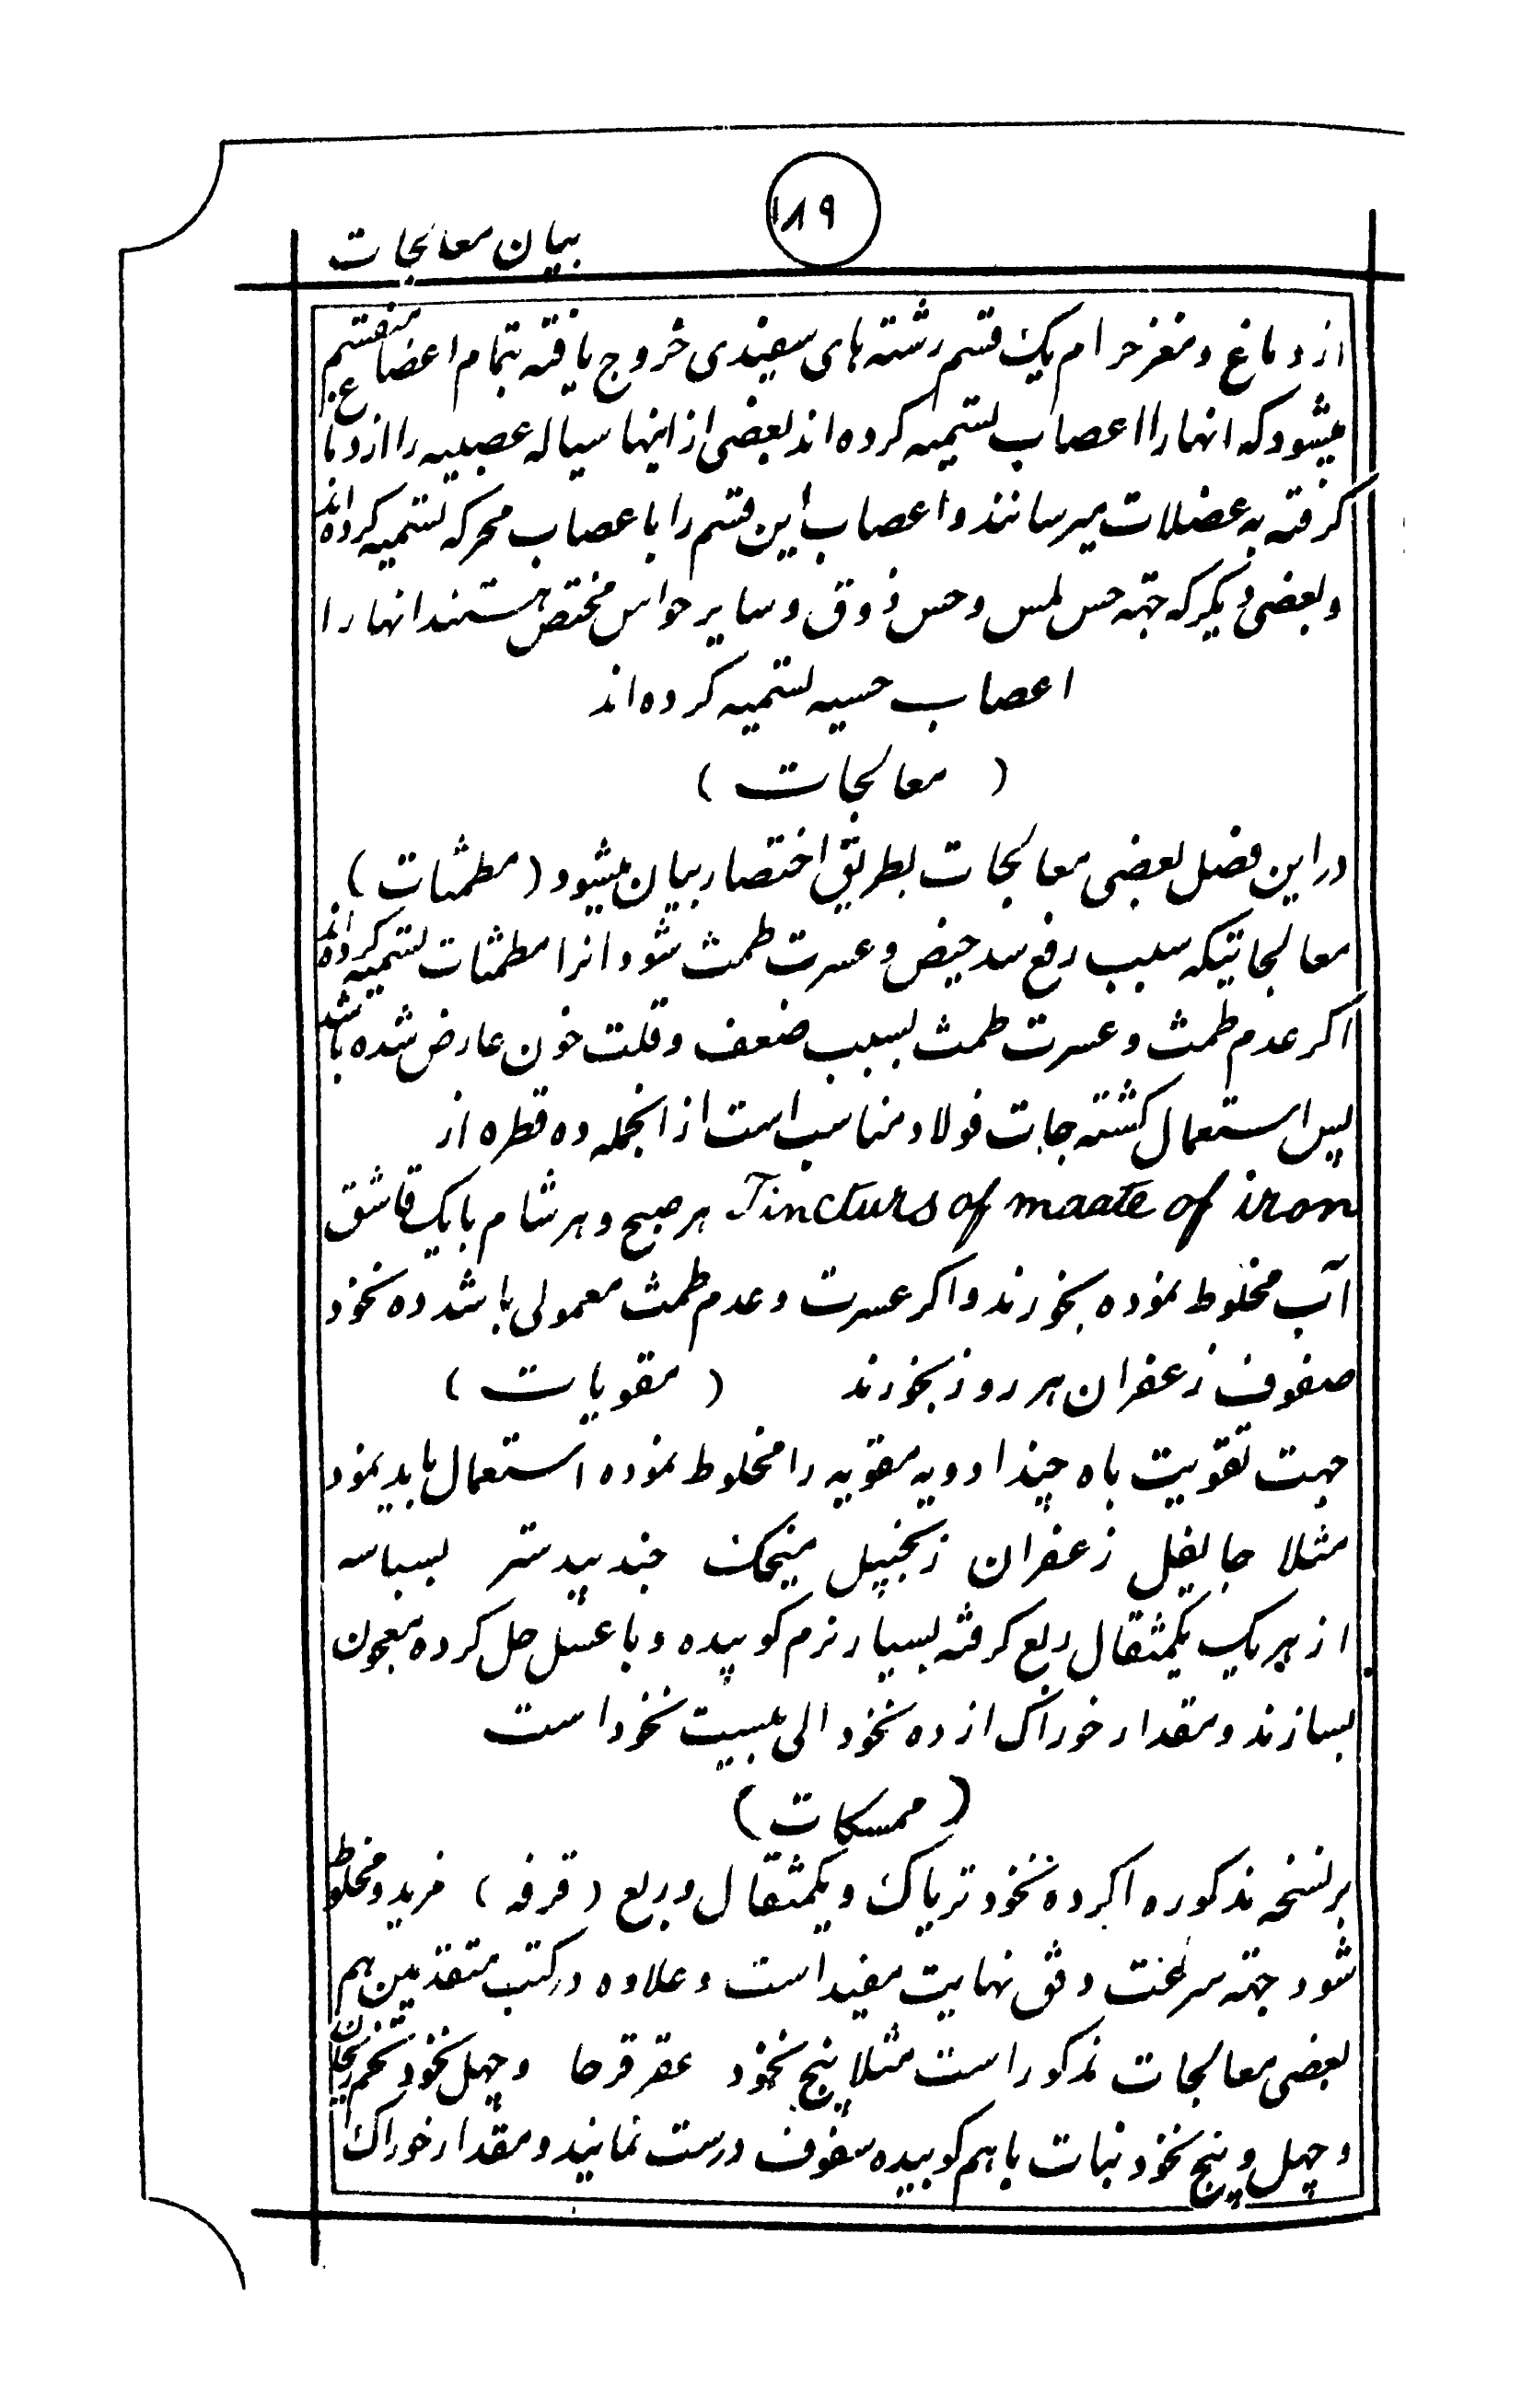 ۱۸۹
بیان معالجات
از دماغ و مغز حرام یک قسم رشته های سفیدی خروج یافته بتمام اعضا منقسم
میشود که انها را اعصاب تسمیه کرده اند بعضی از اینها سیاله عصبیه را از دماغ
کرفته به عضلات میرسانند و اعصاب این قسم را با عصاب محرکه تسمیه کرده اند
و بعضی دیکر که جهته حس لمس و حس ذوق و سایر حواس مختص هستند انها را
اعصاب حسیه تسمیه کرده اند
( معالجات )
در این فصل بعضی معالجات بطریق اختصار بیان میشود ( مطمثات )
معالجاتیکه سبب رفع سد حیض و عسرت طمث شود انرا مطمثات تسمیه کرده اند
اکر عدم طمث و عسرت طمث بسبب ضعف و قلت خون عارض شده باشد
پس استعمال کشته جات فولاد مناسب است از انجمله ده قطره از
Tincturs of maate of iron هر صبح و هر شام با یک قاشق
آب مخلوط نموده بخورند و اکر عسرت و عدم طمث معمولی باشد ده نخود
صفوف زعفران هر روز بخورند ( مقویات )
جهت تقویت باه چند ادویه مقویه را مخلوط نموده استعمال باید نمود
مثلا جایفل زعفران زنجبیل میخک جند بیدستر بسباسه
از هر یک یکمثقال ربع کرفته بسیار نرم کوبیده و با عسل حل کرده معجون
بسازند و مقدار خوراک از ده نخود الی بیست نخود است
( ممسکات )
بر نسخه مذکوره اکر ده نخود تریاک و یکمثقال و ربع ( قرفه ) مزید و مخلوط
شود جهته سرعت دفق نهایت مفید است و علاوه در کتب متقدمین هم
بعضی معالجات مذکور است مثلا پنج نخود عقر قرحا و چهل نخود تخم ریحان
و چهل و پنج نخود نبات با هم کوبیده سفوف درست نمایند و مقدار خوراک